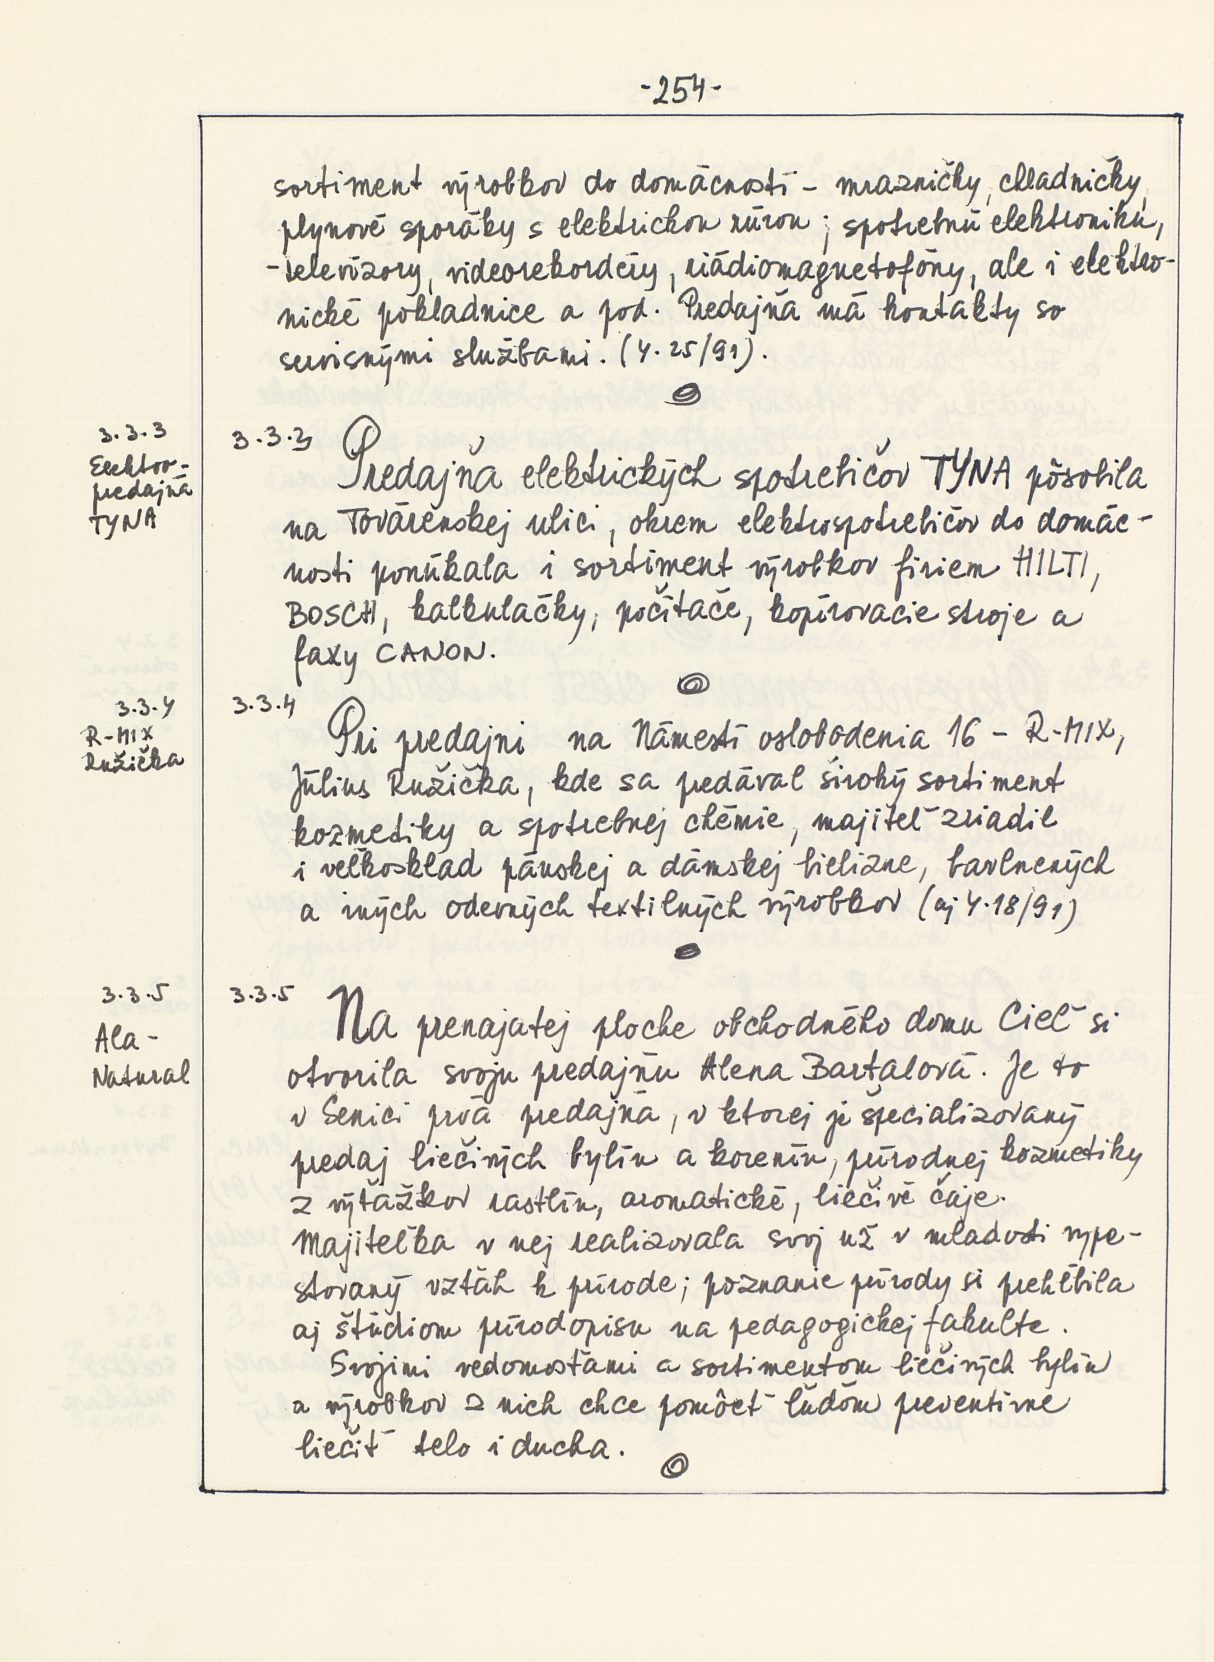 -254-
sortiment výrobkov do domácností - mrazničky, chladničky,
plynové sporáky s elektrickou rúrou; spotrebnú elektroniku,
- televízory, videorekordéry, rádiomagnetofóny, ale i elektro-
nické pokladnice a pod. Predajňa má kontakty so
servisnými službami. (Y. 25/91).
3.3.3
Elektro-
predajňa
TYNA
3.3.3 Predajňa elektrických spotrebičov TYNA pôsobila
na Továrenskej ulici, okrem elektrospotrebičov do domác-
nosti ponúkala i sortiment výrobkov firiem HILTI,
BOSCH, kalkulačky, počítače, kopírovacie stroje a
faxy CANON.
3.3.4
R-MIX
Ružička
3.3.4 Pri predajni na Námestí oslobodenia 16 - R-MIX,
Július Ružička, kde sa predával široký sortiment
kozmetiky a spotrebnej chémie, majiteľ zriadil
i veľkosklad pánskej a dámskej bielizne, bavlnených
a iných odevných textilných výrobkov (aj Y. 18/91)
3.3.5
Ala-
Natural
3.3.5 Na prenajatej ploche obchodného domu Cieľ si
otvorila svoju predajňu Alena Bartalová. Je to
v Senici prvá predajňa, v ktorej je špecializovaný
predaj liečivých bylín a korenín, prírodnej kozmetiky
z výťažkov rastlín, aromatické, liečivé čaje.
Majiteľka v nej realizovala svoj už v mladosti vype-
stovaný vzťah k prírode; poznanie prírody si prehĺbila
aj štúdiom prírodopisu na pedagogickej fakulte.
Svojimi vedomosťami a sortimentom liečivých bylín
a výrobkov z nich chce pomôcť ľuďom preventívne
liečiť telo i ducha.